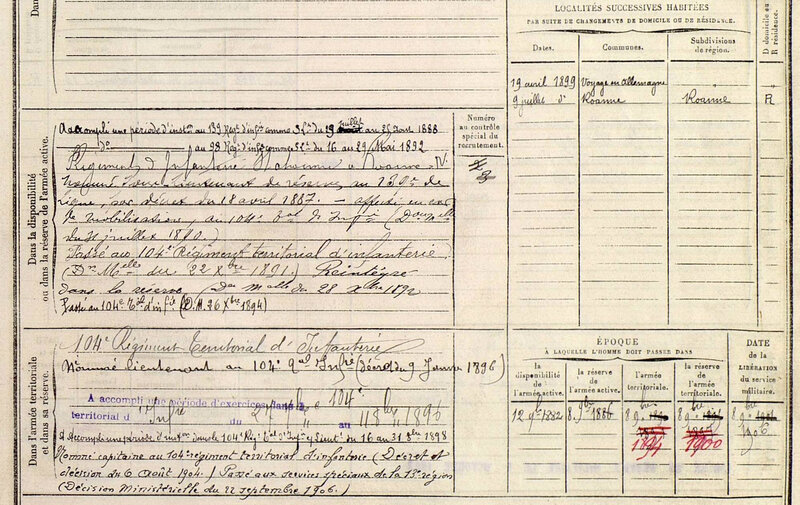 LOCALITÉS SUCCESSIVES HABITÉES
PAR SUITE DE CHANGEMENTS DE DOMICILE OU DE RÉSIDENCE.
D domicile ou
R résidence.
Dates.
Communes.
Subdivisions
de région.
19 avril 1899 Voyage en Allemagne
9 juillet do Roanne Roanne R
Dans la disponibilité
ou dans la réserve de l'armée active.
Numéro
au contrôle
spécial du
recrutement.
Accompli une période d'instn au 139 Regt d'infie comme S/Lt du 29 juillet au 25 Aout 1888
do au 98 Reg. d'inf. comme S/Lt du 16 au 29 Mai 1892
Régiment d'Infanterie à Roanne
Nommé Sous-Lieutenant de réserve au 139e de
ligne, par décret du 18 avril 1887. affecté, en cas
de mobilisation, au 104e
du 31 juillet 1890.
Passé au 104e Régiment territorial d'infanterie
(Don Mlle du 22 Xbre 1891.) Réintégré
dans la réserve (Don Mlle du 28 Xbre 1892
Passé au 104e Tal d'infie (D.M. 26 Xbre 1894)
Dans l'armée territoriale
et dans sa réserve.
104e Régiment Territorial d'Infanterie
Nommé lieutenant au 104e Infie (Décret du 9 Janvr 1896)
À accompli une période d'exercices dans le 104e
territorial d'Infie du au 1896
A accompli une période d'instn dans le 104e Regt tal d'Infie du 16 au 31 8bre 1898
Nommé capitaine au 104e régiment territorial d'infanterie (Décret et
décision du 6 août 1904.) Passé aux services spéciaux de la 13e région
(Décision Ministérielle du 22 septembre 1906.)
ÉPOQUE
À LAQUELLE L'HOMME DOIT PASSER DANS
DATE
DE LA
LIBÉRATION
du
service
militaire.
la
disponibilité
de
l'armée active.
la
réserve
de
l'armée active.
l'armée
territoriale.
la réserve
de
l'armée
territoriale.
12 9bre 1882 8 9bre 1886 8 9bre 8 9bre 8 9bre
1894 1900 1906